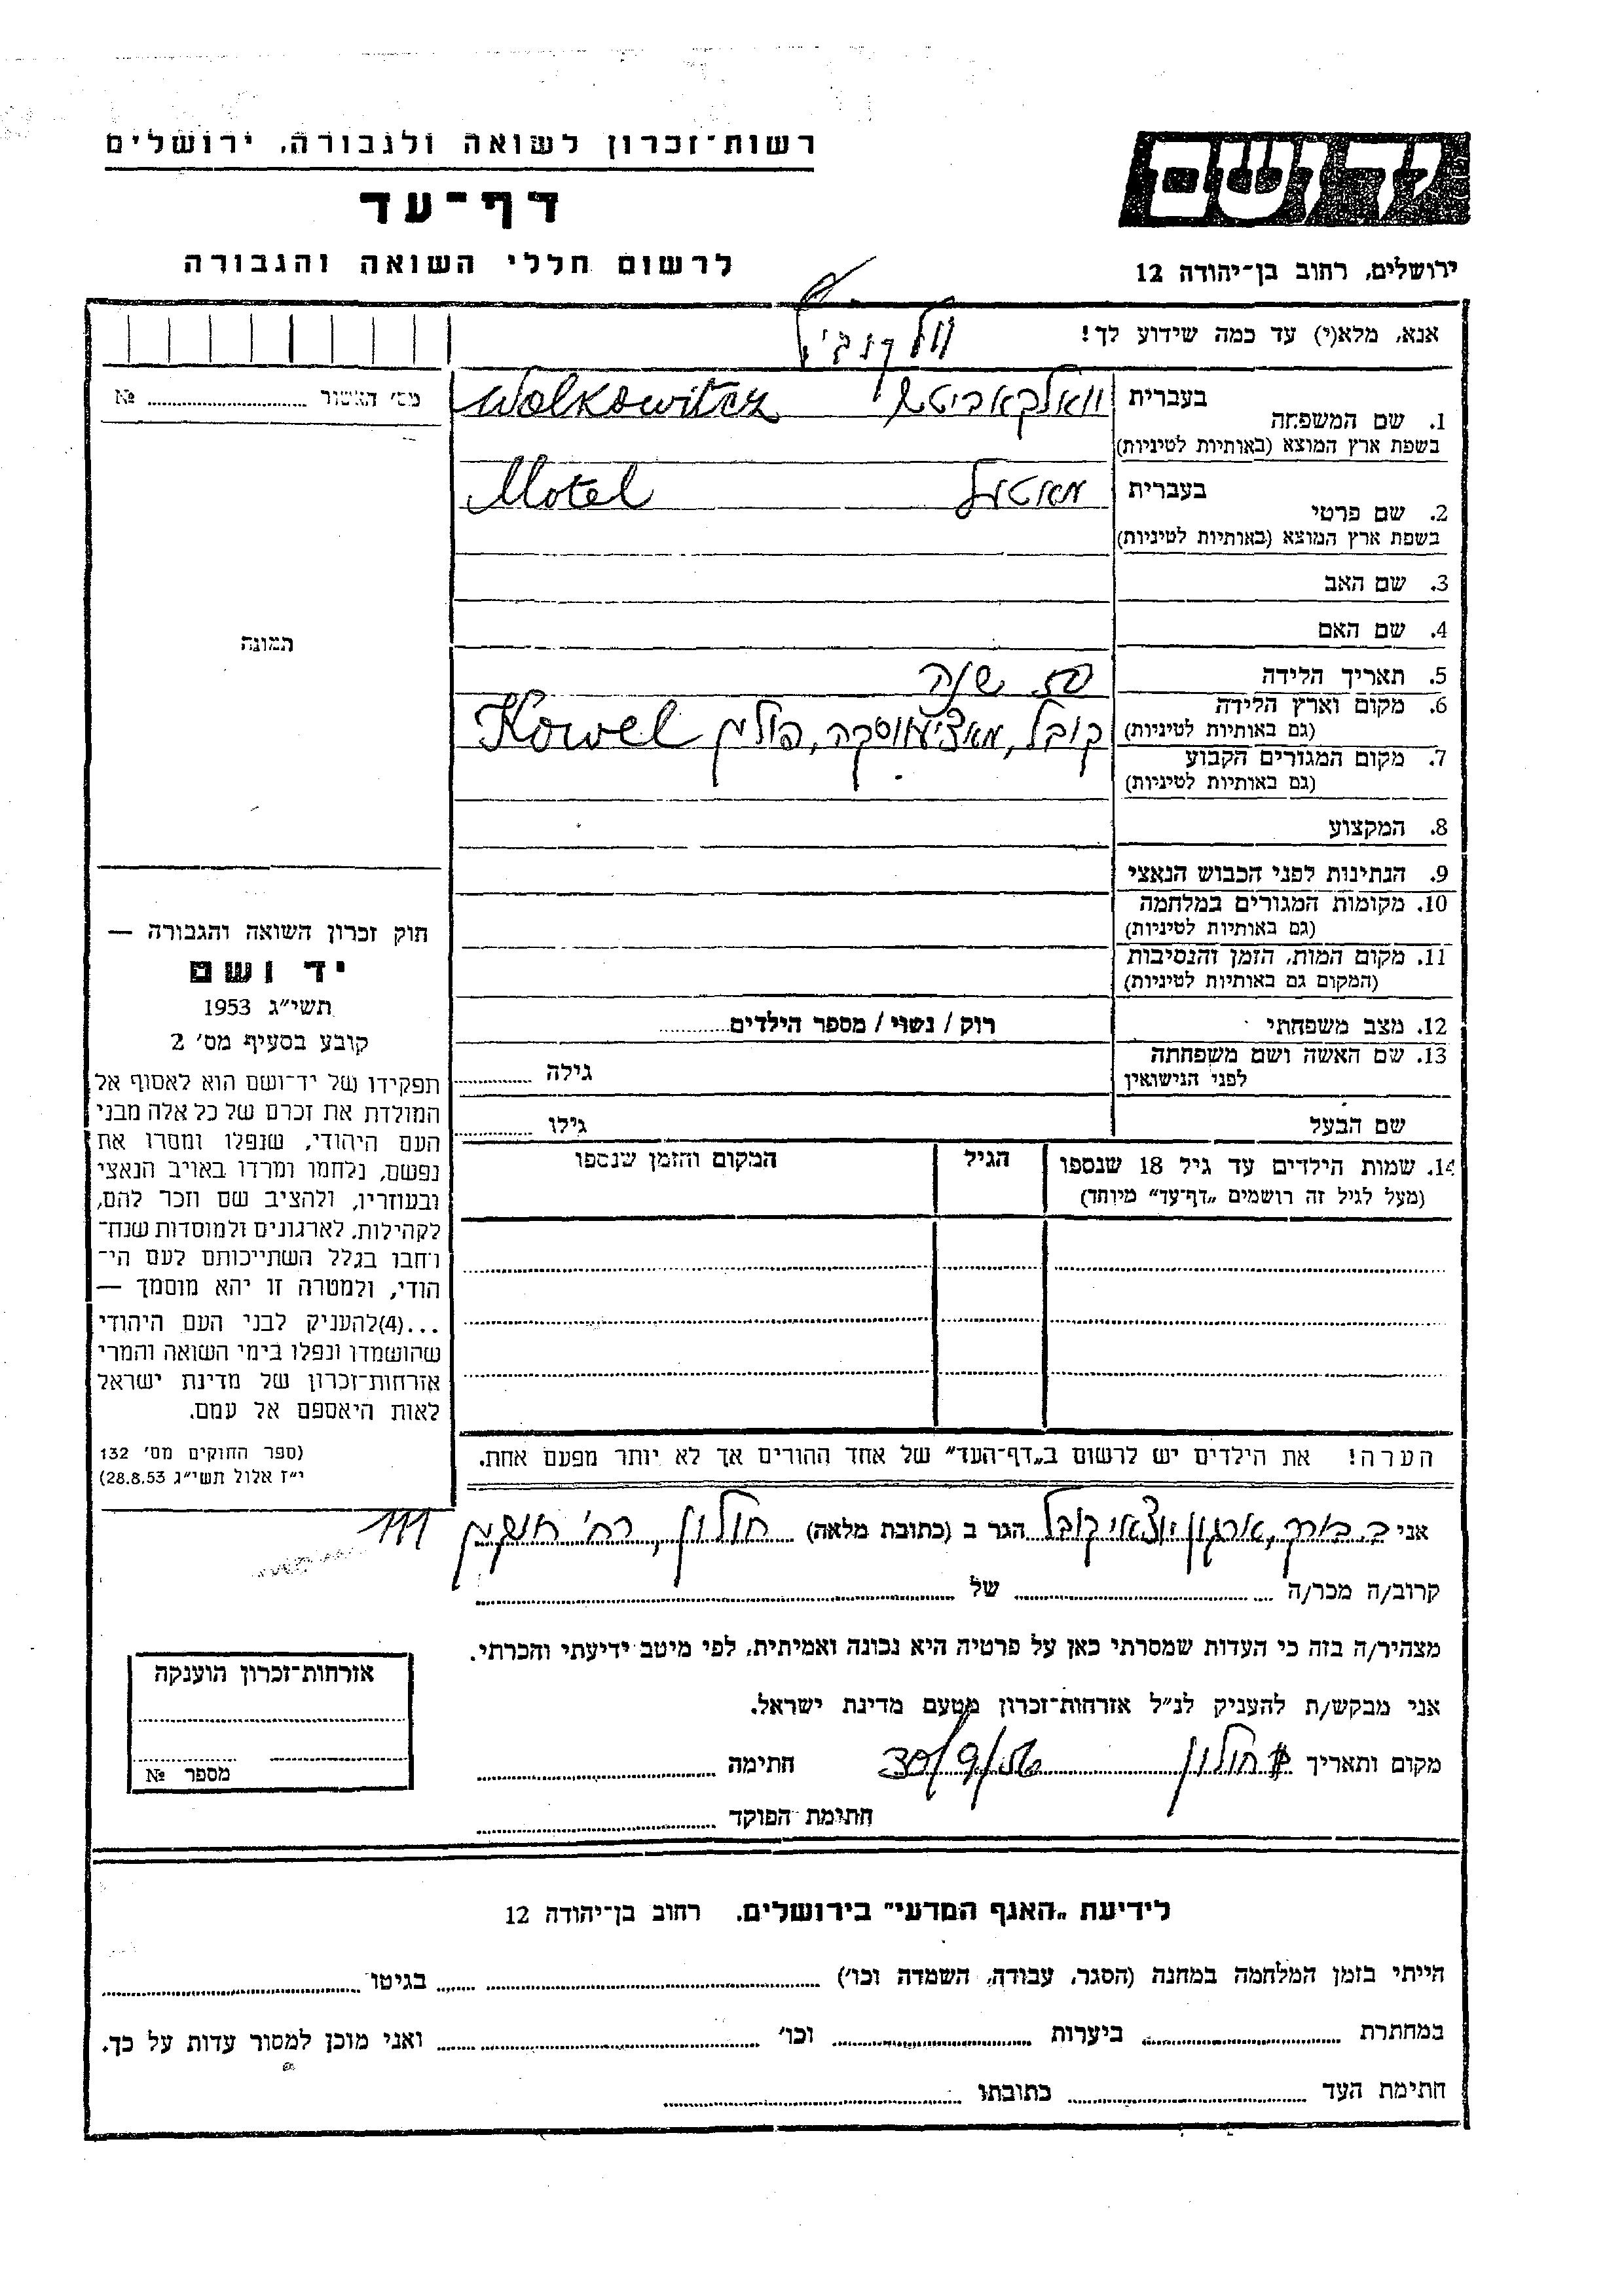 רשות־זכרון לשואה ולגבורה, ירושלים
דף־עד
לרשום חללי השואה והגבורה
יד ושם
ירושלים, רחוב בן־יהודה 12
אנא, מלא(י) עד כמה שידוע לך!
מס׳ האשור № 
1. שם המשפחה בעברית וואלקאביטש Wolkowitcz
בשפת ארץ המוצא (באותיות לטיניות)
2. שם פרטי בעברית מאטעל Motel
בשפת ארץ המוצא (באותיות לטיניות)
3. שם האב
4. שם האם
5. תאריך הלידה שנה
6. מקום וארץ הלידה קובל, פולין Kowel
(גם באותיות לטיניות)
7. מקום המגורים הקבוע
(גם באותיות לטיניות)
8. המקצוע
9. הנתינות לפני הכבוש הנאצי
10. מקומות המגורים במלחמה
(גם באותיות לטיניות)
11. מקום המות, הזמן והנסיבות
(המקום גם באותיות לטיניות)
12. מצב משפחתי רוק / נשוי / מספר הילדים
13. שם האשה ושם משפחתה
לפני הנישואין גילה
שם הבעל גילו
14. שמות הילדים עד גיל 18 שנספו הגיל המקום והזמן שנספו
(מעל לגיל זה רושמים „דף־עד״ מיוחד)
הערה! את הילדים יש לרשום ב„דף־העד״ של אחד ההורים אך לא יותר מפעם אחת.
תמונה
חוק זכרון השואה והגבורה —
יד ושם
תשי״ג 1953
קובע בסעיף מס׳ 2
תפקידו של יד־ושם הוא לאסוף אל
המולדת את זכרם של כל אלה מבני
העם היהודי, שנפלו ומסרו את
נפשם, נלחמו ומרדו באויב הנאצי
ובעוזריו, ולהציב שם וזכר להם,
לקהילות, לארגונים ולמוסדות שנח־
רחבו בגלל השתייכותם לעם הי־
הודי, ולמטרה זו יהא מוסמך —
...(4)להעניק לבני העם היהודי
שהושמדו ונפלו בימי השואה והמרי
אזרחות־זכרון של מדינת ישראל
לאות היאספם אל עמם.
(ספר החוקים מס׳ 132
י״ז אלול תשי״ג 28.8.53)
אני ב. ארגון יוצאי קובל הגר ב (כתובת מלאה) חולון, רח׳ 111
קרוב/ה מכר/ה של
מצהיר/ה בזה כי העדות שמסרתי כאן על פרטיה היא נכונה ואמיתית, לפי מיטב ידיעתי והכרתי.
אני מבקש/ת להעניק לנ״ל אזרחות־זכרון מטעם מדינת ישראל.
מקום ותאריך חולון 30/9/56 חתימה
חתימת הפוקד
אזרחות־זכרון הוענקה
מספר №
לידיעת „האגף המדעי״ בירושלים, רחוב בן־יהודה 12
הייתי בזמן המלחמה במחנה (הסגר, עבודה, השמדה וכו׳) בגיטו
במחתרת ביערות וכו׳ ואני מוכן למסור עדות על כך.
חתימת העד כתובתו